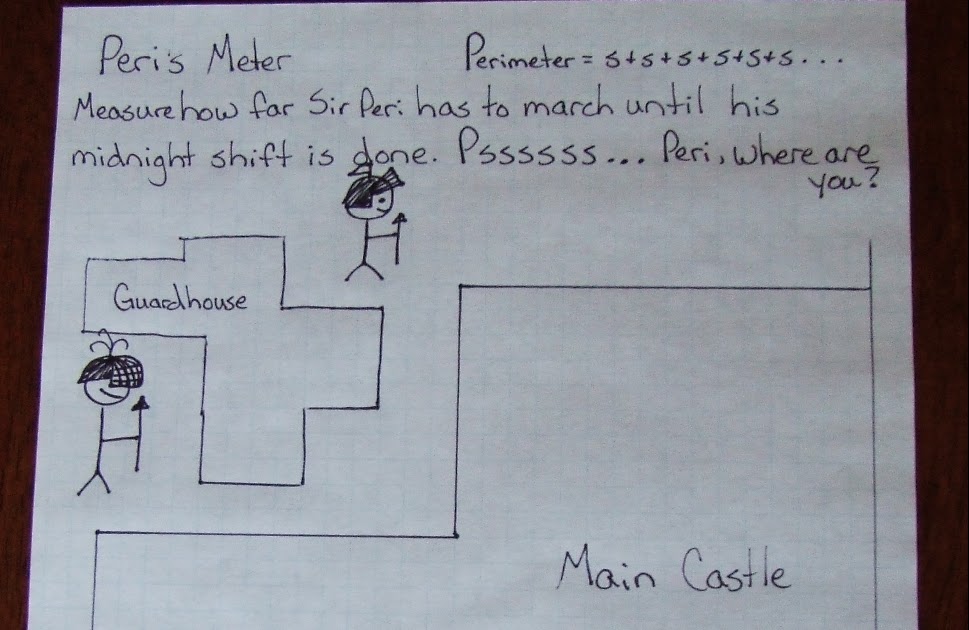 Peri's Meter
Perimeter = s+s+s+s+s+s...
Measure how far Sir Peri has to march until his
midnight shift is done. Pssssss... Peri, where are
you?
Guardhouse
Main Castle